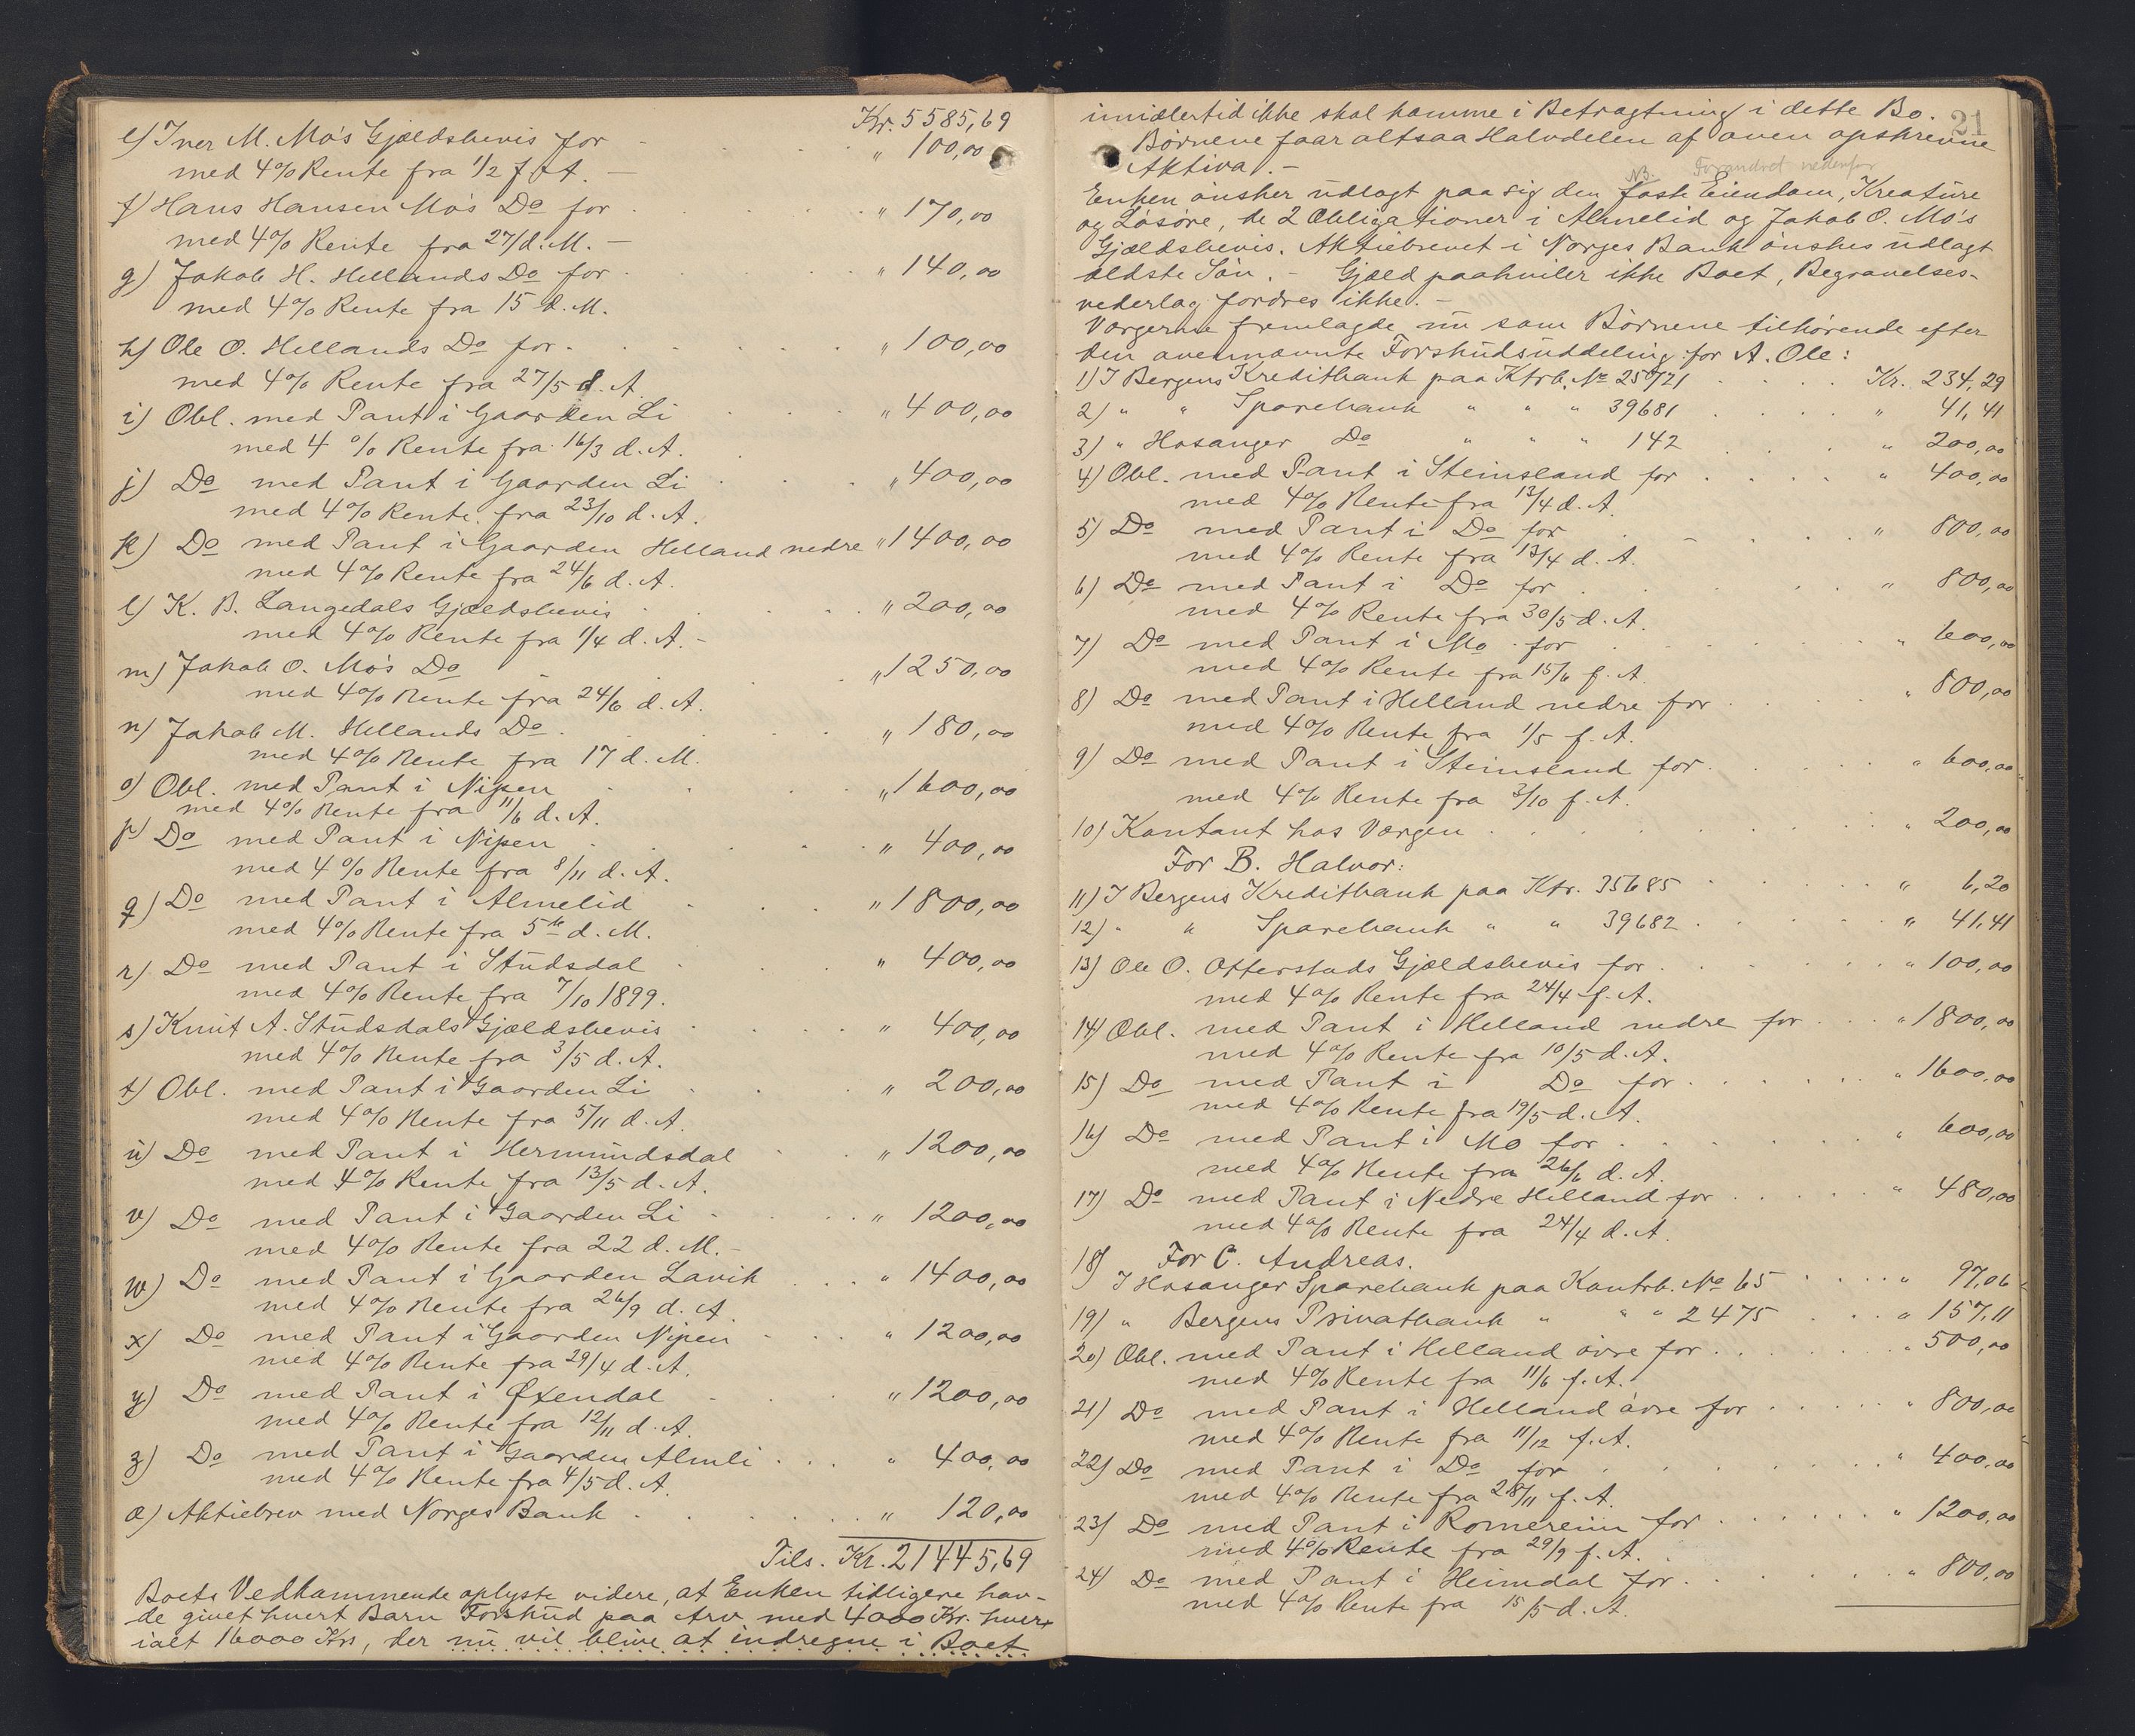 Kr. 5585,69
e) Iver M. Mo's Gjældsbevis for " 100,00
med 4% Rente fra 1/2 f. A. —
f) Hans Hansen Mo's Do for " 170,00
med 4% Rente fra 27/ d. M. —
g) Jakob H. Hellands Do for " 140,00
med 4% Rente fra 15 d. M.
h) Ole O. Hellands Do for " 100,00
med 4% Rente fra 27/5 d. A.
i) Obl. med Pant i Gaarden Li " 400,00
med 4 % Rente fra 16/3 d. A.
j) Do med Pant i Gaarden Li " 400,00
med 4% Rente fra 23/10 d. A.
k) Do med Pant i Gaarden Helland nedre " 1400,00
med 4% Rente fra 24/6 d. A.
l) K. B. Langedals Gjældsbevis " 200,00
med 4% Rente fra 1/4 d. A. -
m) Jakob O. Mo's Do " 1250,00
med 4% Rente fra 24/6 d. A.
n) Jakob M. Hellands Do " 180,00
med 4% Rente fra 17 d. M.
o) Obl. med Pant i Nipen " 1600,00
med 4% Rente fra 11/6 d. A.
p) Do med Pant i Nipen " 400,00
med 4% Rente fra 8/11 d. A.
q) Do med Pant i Almelid " 1800,00
med 4% Rente fra 5te d. M.
r) Do med Pant i Studsdal " 400,00
med 4% Rente fra 7/10 1899.
s) Knut A. Studsdals Gjældsbevis " 400,00
med 4% Rente fra 3/5 d. A.
t) Obl. med Pant i Gaarden Li " 200,00
med 4% Rente fra 5/11 d. A.
u) Do med Pant i Hermundsdal " 1200,00
med 4% Rente fra 13/5 d. A.
v) Do med Pant i Gaarden Li " 1200,00
med 4% Rente fra 22 d. M. -
w) Do med Pant i Gaarden Lavik " 1400,00
med 4% Rente fra 26/9 d. A.
x) Do med Pant i Gaarden Nipen " 1200,00
med 4% Rente fra 29/4 d. A.
y) Do med Pant i Øxendal " 1200,00
med 4% Rente fra 12/11 d. A.
z) Do med Pant i Gaarden Almli " 400,00
med 4% Rente fra 4/5 d. A.
æ) Aktiebrev med Norges Bank " 120,00
Tils. Kr. 21445,69
Boets Vedkommende oplyste videre, at Enken tidligere hav-
de givet hvert Barn Forskud paa Arv med 4000 Kr. hver
ialt 16000 Kr, der nu vil blive at indregne i Boet
21
imidlertid ikke skal komme i Betragtning i dette Bo.
Børnene faar altsaa Halvdelen af oven opskrevne
Aktiva. -
NB. Forandret nedenfor
Enken ønsker udlagt paa sig den faste Eiendom, Kreature
og Løsøre, de 2 Obligationer i Almelid og Jakob O. Mo's
Gjældsbevis. Aktiebrevet i Norges Bank ønskes udlagt
ældste Søn. - Gjæld paahviler ikke Boet, Begravelses-
vederlag fordres ikke. -
Værgerne fremlagde nu som Børnene tilhørende efter
den ovennævnte Forskudsuddeling for A. Ole:
1) I Bergens Kreditbank paa Ktrb. No 25671 Kr. 234,29
2) " " Sparebank " " " 39681 " 41,41
3) " Hosanger Do " " " 142 " 200,00
4) Obl. med Pant i Steinsland for " 400,00
med 4% Rente fra 13/4 d. A.
5) Do med Pant i Do for " 800,00
med 4% Rente fra 13/4 d. A.
6) Do med Pant i Do for " 800,00
med 4% Rente fra 30/5 d. A.
7) Do med Pant i Mo for " 600,00
med 4% Rente fra 15/6 f. A.
8) Do med Pant i Helland nedre for " 800,00
med 4% Rente fra 1/5 f. A.
9) Do med Pant i Steinsland for " 600,00
med 4% Rente fra 3/10 f. A.
10) Kontant hos Værgen " 200,00
For B. Halvor:
11) I Bergens Kreditbank paa Ktr. 35685 " 6,20
12) " " Sparebank " " 39682 " 41,41
13) Ole O. Otterstads Gjældsbevis for " 100,00
med 4% Rente fra 24/4 f. A.
14) Obl. med Pant i Helland nedre for " 1800,00
med 4% Rente fra 10/5 d. A.
15) Do med Pant i Do for " 1600,00
med 4% Rente fra 19/5 d. A.
16) Do med Pant i Mo for " 600,00
med 4% Rente fra 26/6 d. A.
17) Do med Pant i Nedre Helland for " 480,00
med 4% Rente fra 24/4 d. A.
18) For C. Andreas.
I Hosanger Sparebank paa Kontrb. No 65 " 97,06
19) " Bergens Privatbank " " " 2475 " 157,11
20) Obl. med Pant i Helland øvre for " 500,00
med 4% Rente fra 11/6 f. A.
21) Do med Pant i Helland øvre for " 800,00
med 4% Rente fra 11/12 f. A.
22) Do med Pant i Do for " 400,00
med 4% Rente fra 28/11 f. A.
23) Do med Pant i Romereim for " 1200,00
med 4% Rente fra 29/9 f. A.
24) Do med Pant i Heimdal for " 800,00
med 4% Rente fra 15/5 d. A.